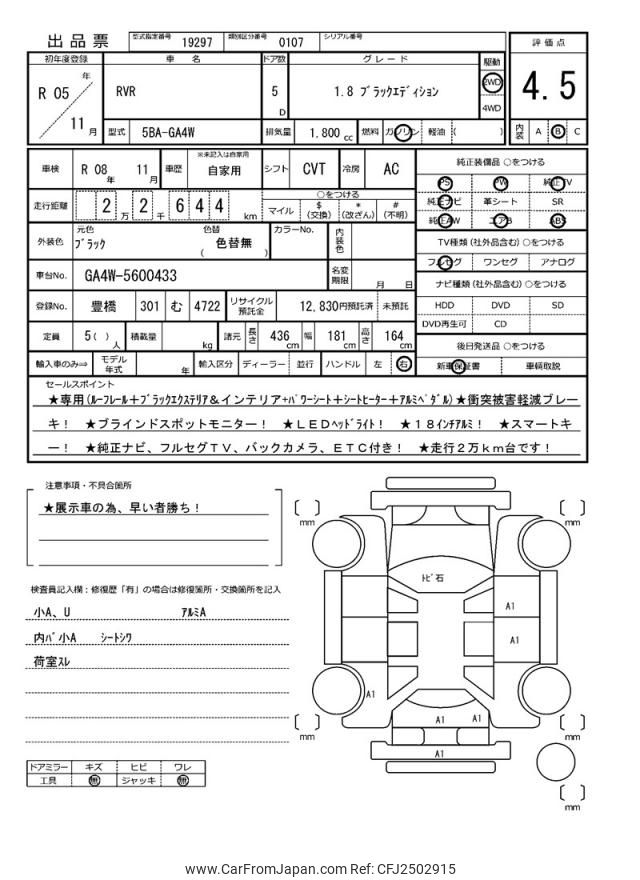 出品票 型式指定番号 19297 類別区分番号 0107 シリアル番号
評価点
4.5
内装 A B C
初年度登録 車名 ドア数 グレード 駆動
R 05 年 11 月
RVR 5 D 1.8 ブラックエディション 2WD 4WD
型式 5BA-GA4W 排気量 1.800 cc 燃料 ガソリン 軽油 ( )
車検 R 08 年 11 月 車歴 ※未記入は自家用 自家用 シフト CVT 冷房 AC
走行距離 2 万 2 千 6 4 4 km ○をつける マイル $ (交換) * (改ざん) # (不明)
外装色 元色 ブラック 色替 ( 色替無 ) カラーNo. 内装色
車台No. GA4W-5600433 名変期限 月 日
登録No. 豊橋 301 む 4722 リサイクル預託金 12,830円預託済 未預託
定員 5( ) 人 積載量 kg 諸元 長さ 436 cm 幅 181 cm 高さ 164 cm
輸入車のみ⇒ モデル年式 年 輸入区分 ディーラー 並行 ハンドル 左 右
純正装備品 ○をつける
PS PW 純正TV
純正ナビ 革シート SR
純正AW エアB ABS
TV種類 (社外品含む) ○をつける
フルセグ ワンセグ アナログ
ナビ種類 (社外品含む) ○をつける
HDD DVD SD
DVD再生可 CD
後日発送品 ○をつける
新車保証書 車輌取説
セールスポイント
★専用(ルーフレール+ブラックエクステリア&インテリア+パワーシート+シートヒーター+アルミペダル)★衝突被害軽減ブレー
キ! ★ブラインドスポットモニター! ★LEDヘッドライト! ★18インチアルミ! ★スマートキ
ー! ★純正ナビ、フルセグTV、バックカメラ、ETC付き! ★走行2万km台です!
注意事項・不具合箇所
★展示車の為、早い者勝ち!
検査員記入欄:修復歴「有」の場合は修復箇所・交換箇所を記入
小A、U アルミA
内パ小A シートシワ
荷室スレ
ドアミラー キズ ヒビ ワレ
工具 無 ジャッキ 無
mm
mm
トビ石
A1
A1
A1
A1 A1
A1
mm
mm
mm
www.CarFromJapan.com Ref: CFJ2502915